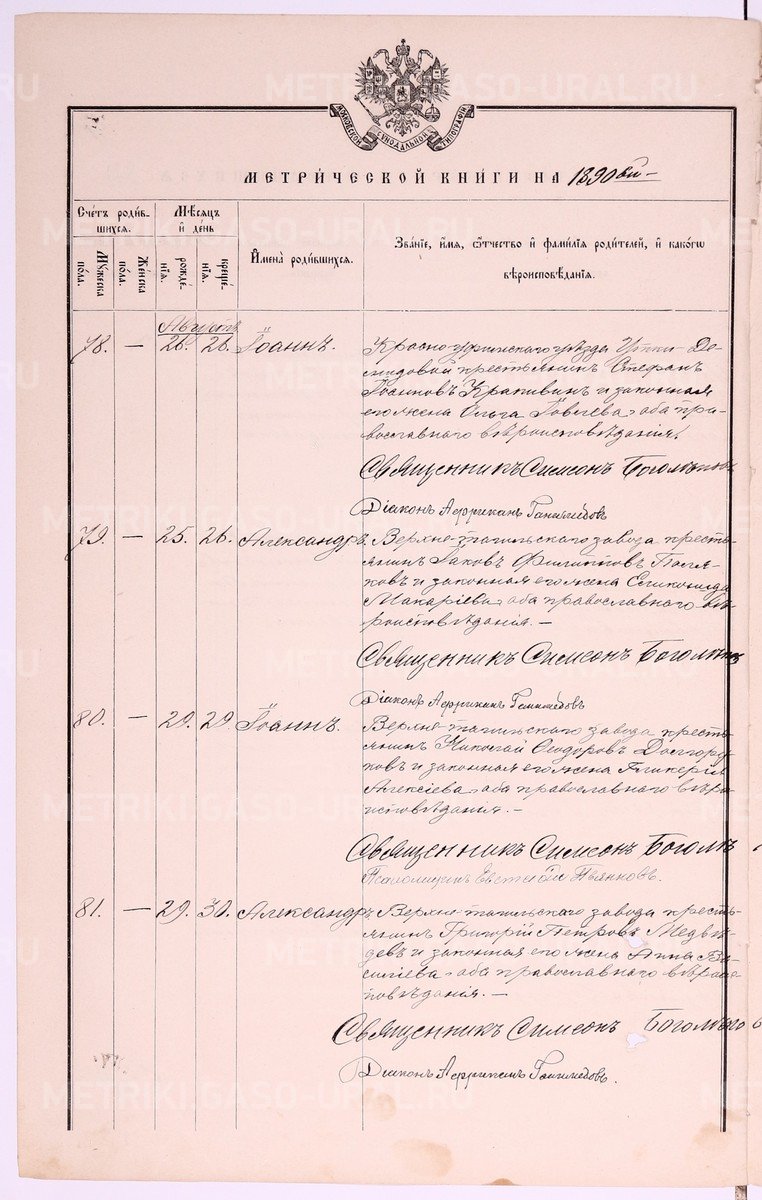 МОСКОВСКОЙ СѴНОДАЛЬНОЙ ТИПОГРАФІИ
МЕТРИ́ЧЕСКОЙ КНИ́ГИ НА 1890 ый
Сче́тъ роди́в-
шихся.
Мѣ́сяцъ
и҆ де́нь
И҆мена̀ роди́вшихся.
Зва́нїе, и҆́мя, ѻ҆́тчество и҆ фами́лїя роди́телей, и҆ како́гѡ
вѣроисповѣ́данїя.
Мꙋ́жеска
по́ла.
Же́нска
по́ла.
рожде́-
нїя.
креще́-
нїя.
Августъ
78. — 26. 26. Іоаннъ. Красноуфимскаго уѣзда Утки Де-
мидовой крестьянинъ Стефанъ
Крапивинъ и законная
его жена Ольга Іовлева, оба пра-
вославнаго вѣроисповѣданія.
Священникъ Симеонъ
Діаконъ Африканъ Ганимедовъ
79. — 25. 26. Александръ. Верхне-тагильскаго завода кресть-
янинъ Іаковъ Филипповъ Поля-
ковъ и законная его жена
Макаріева, оба православнаго вѣ-
роисповѣданія. —
Священникъ Симеонъ
Діаконъ Африканъ Ганимедовъ
80. — 29. 29. Іоаннъ. Верхне-тагильскаго завода кресть-
янинъ Николай Ѳеодоровъ Долгору-
ковъ и законная его жена Гликерія
Алексіева, оба православнаго вѣро-
исповѣданія. —
Священникъ Симеонъ
Псаломщикъ Евстафій
81. — 29. 30. Александръ Верхне-тагильскаго завода кресть-
янинъ Григорій Петровъ Медвѣ-
девъ и законная его жена Анна Ва-
силіева, оба православнаго вѣроис-
повѣданія. —
Священникъ Симеонъ
Діаконъ Африканъ Ганимедовъ.
METRIKI.GASO-URAL.RU